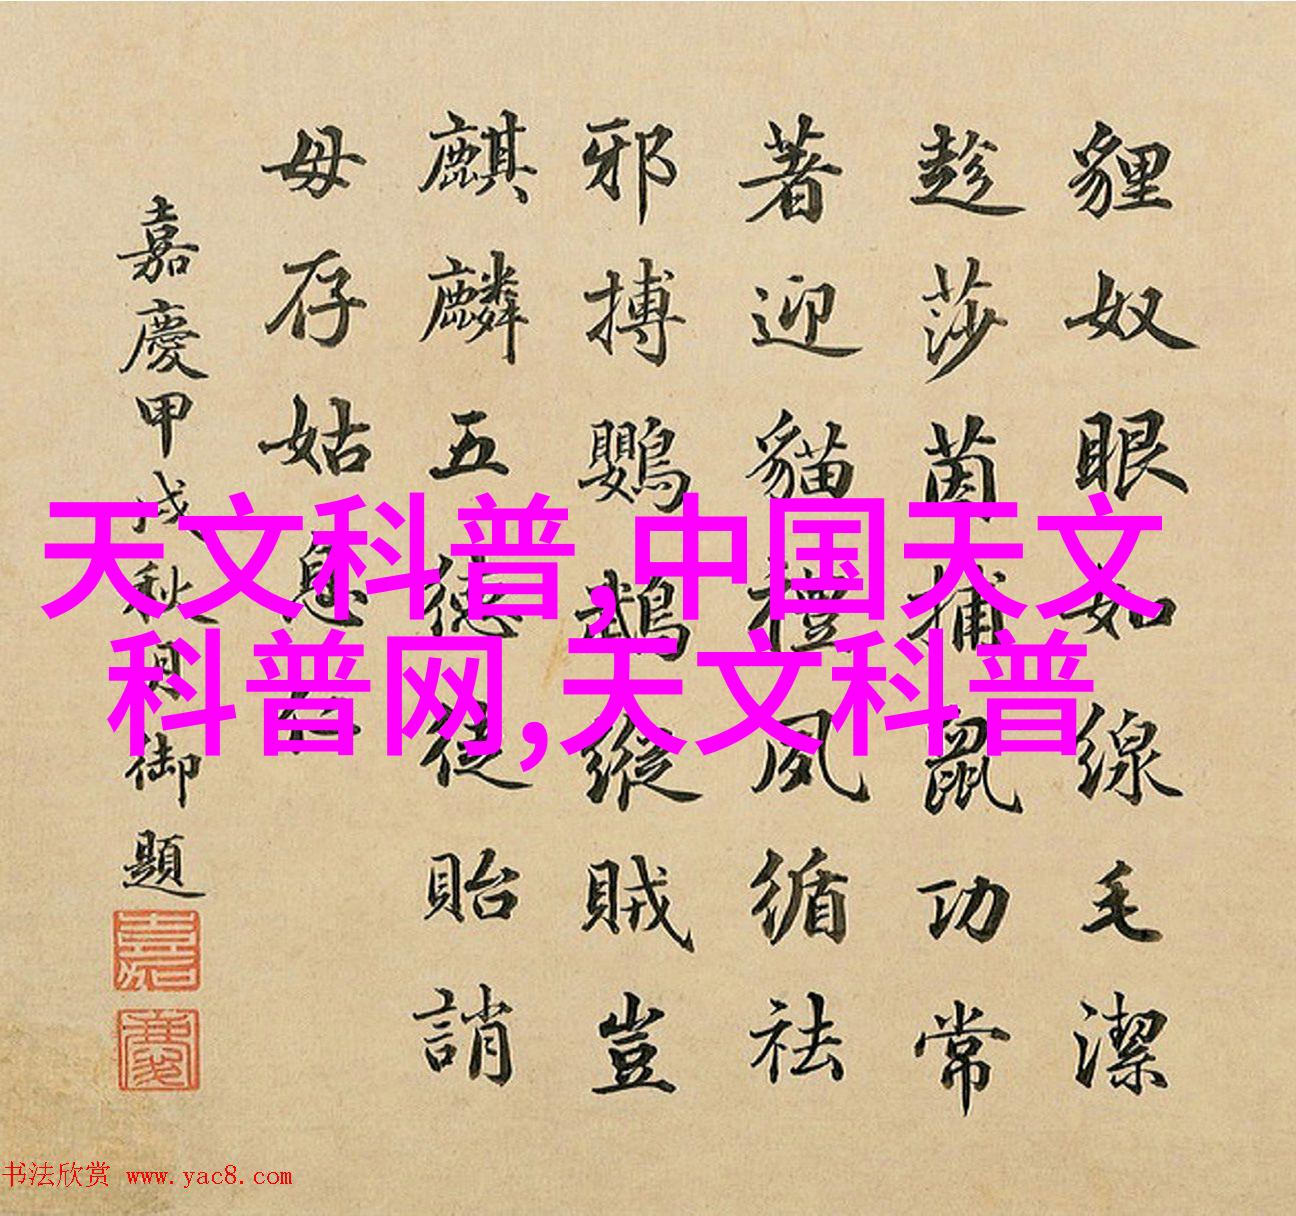 貍奴眼如線毛潔
趁莎茵捕鼠功常
著迎貓禮夙循祛
邪搏鸚鵡縱賊豈
麒麟五德徒貽誚
毋存姑息仁
嘉慶甲戌秋月御題
嘉
慶
天文科普,中国天文
科普网,天文科普
书法欣赏 www.yac8.com